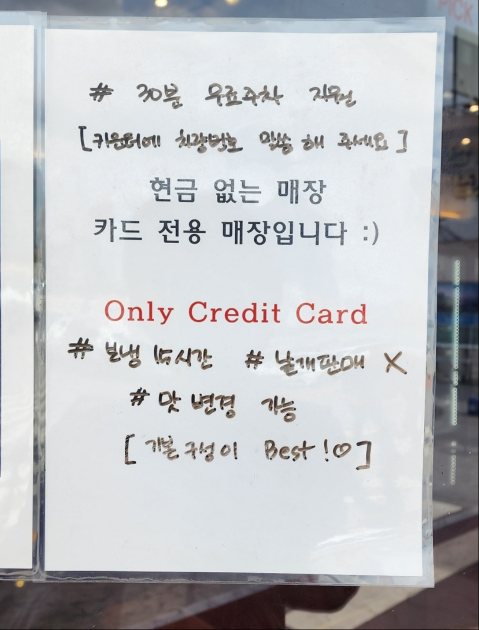 # 30분 무료주차 지원
[카운터에 차량번호 말씀 해 주세요]
현금 없는 매장
카드 전용 매장입니다 :)
Only Credit Card
# 보냉 15시간 # 낱개판매 X
# 맛 변경 가능
[기본 구성이 Best!♡]
PICK